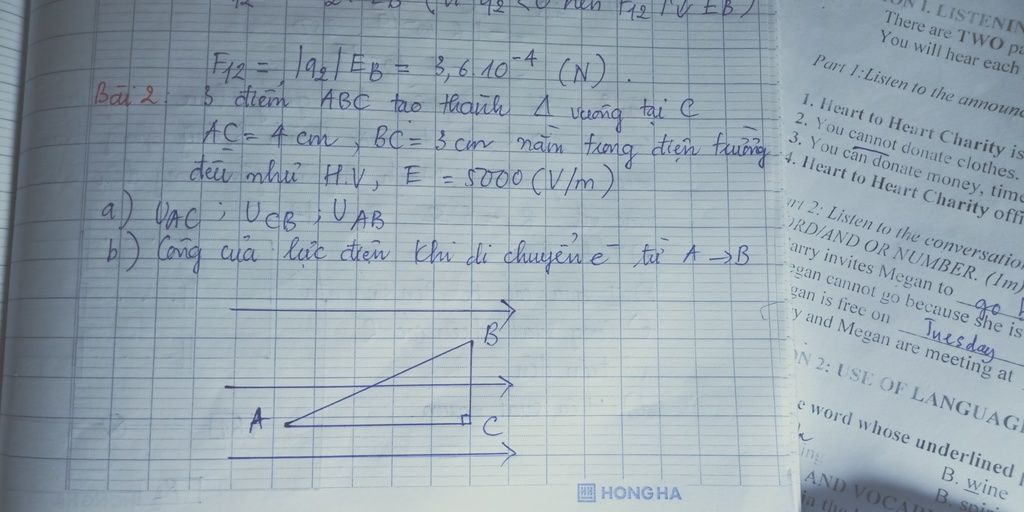 F12 = |q2| EB = 3,6.10⁻⁴ (N).
Bài 2: 3 điểm ABC tạo thành Δ vuông tại C
AC = 4 cm, BC = 3 cm nằm trong điện trường
đều như H.V, E = 5000 (V/m)
a) UAC ; UCB ; UAB
b) Công của lực điện khi di chuyển e từ A → B
B
A
C
HONG HA
ON 1. LISTENIN
There are TWO pa
You will hear each
Part 1: Listen to the announc
1. Heart to Heart Charity is
2. You cannot donate clothes.
3. You can donate money, time
4. Heart to Heart Charity offi
rt 2: Listen to the conversation
ORD/AND OR NUMBER. (1m)
arry invites Megan to go
egan cannot go because she is
gan is free on Tuesday
y and Megan are meeting at
ON 2: USE OF LANGUAG
e word whose underlined
B. wine
AND VOCAB
B.
in the